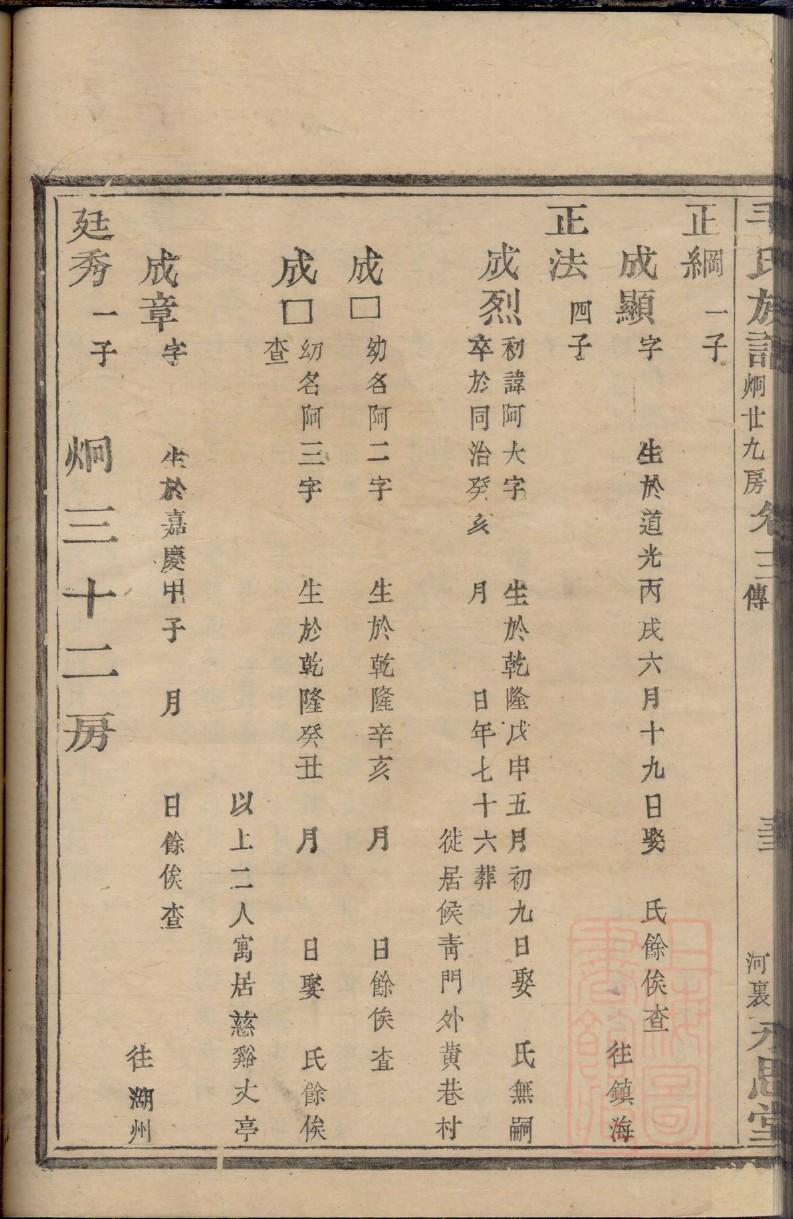 毛氏族譜 炯廿九房 卷三 傳 河裏 永思堂
正綱 一子
成顯 字 生於道光丙戌六月十九日娶 氏餘俟查
往鎮海
正法 四子
成烈 初諱阿大字 生於乾隆戊申五月初九日娶 氏無嗣
卒於同治癸亥 月 日年七十六葬
徙居候青門外黄巷村
成□ 幼名阿二字 生於乾隆辛亥 月 日餘俟查
成□ 幼名阿三字 生於乾隆癸丑 月 日娶 氏餘俟
查
以上二人寓居慈谿丈亭
成章 字 生於嘉慶甲子 月 日餘俟查
往湖州
廷秀 一子 炯三十二房